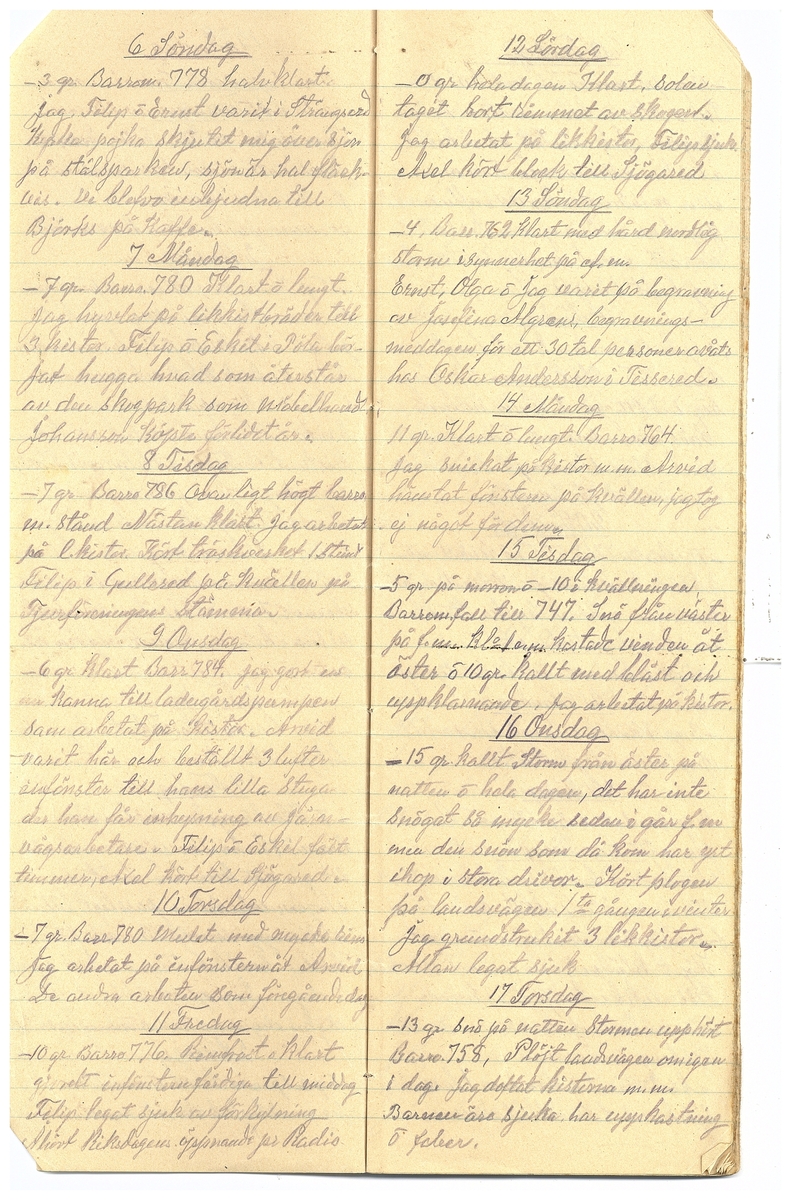 6 Söndag
-3 gr. Barrom. 778 halvklart.
Jag, Filip ö Ernst varit i Strängsered
Kyrka pojka skjutit mig över sjön
på stålsparken, sjön är hal fläck-
vis. Vi blefvo inbjudna till
Björks på Kaffe.
7 Måndag
-7 gr. Barro. 780 Klart ö lungt.
Jag hyvlat på likkistbräder till
3 kistor. Filip ö Eskil i bör-
jat hugga hvad som återstår
av den skogpark som möbelhandl.
Johansson köpte förlidet år.
8 Tisdag
-7 gr Barro 786 Ovanligt högt barro
m. stånd Nästan klart. Jag arbetat
på l.kistor. Kört tröskverket 1 stund
Filip i Gullered på kvällen på
Tjurföreningens Stämma.
9 Onsdag
-6 gr Klart Barr 784. jag gort en
kanna till ladugårdspumpen
sam arbetat på Kistor. Arvid
varit här och beställt 3 lufter
infönster till hans lilla Stuga
der han får inhysning av järn-
vägsarbetare. Filip ö Eskil fält
timmer, Axel kört till Sjögared.
10 Torsdag
-7 gr. Barr 780 Mulet med mycke
Jag arbetat på infönstern åt Arvid
De andra arbeten som föregående dag
11 Fredag
-10 gr. Barro 776. Rimfrost ö klart
gjordt infönstren färdiga till middag
Filip legat sjuk av förkylning
Ahört Riksdagens öppnande per Radio
12 Lördag
-0 gr hela dagen Klart, solen
taget bort rimmet av skogen.
Jag arbetat på likkistor, Filip sjuk.
Axel kört block till Sjögared
13 Söndag
-4. Barr. 762 Klart med hård nordlig
storm i synnerhet på ef. m.
Ernst, Olga ö Jag varit på begravning
av Josefina Algrens, begravnings-
meddagen för ett 30 tal personer
hos Oskar Andersson i Tissered.
14 Måndag
11 gr. Klart ö lungt. Barro 764.
Jag snickat på kistor m.m. Arvid
hämtat fönstren på kvällen, jag tog
ej något för dem.
15 Tisdag
-5 gr på morron ö -10 i kvällningen.
Barrom. fall till 747. Snö från väster
på f.m. kl. em. kastade vinden åt
öster ö 10 gr. kallt med blåst och
uppklarnande. Jag arbetat på kistor.
16 Onsdag
-15 gr. kallt Storm från öster på
natten ö hela dagen, det har inte
snögat så myck sedan i går f.m
men den snön som då kom har yrt
ihop i stora drivor. Kört plogen
på landsvägen 1ta gången i vinter
Jag grundstruket 3 likkistor.
Allan legat sjuk
17 Torsdag
-13 gr snö på natten Stormen upphört
Barro. 758, Plöjt landsvägen omigen
i dag. Jag doftat kistorna m.m.
Barnen äro sjuka har uppkastning
ö feber.